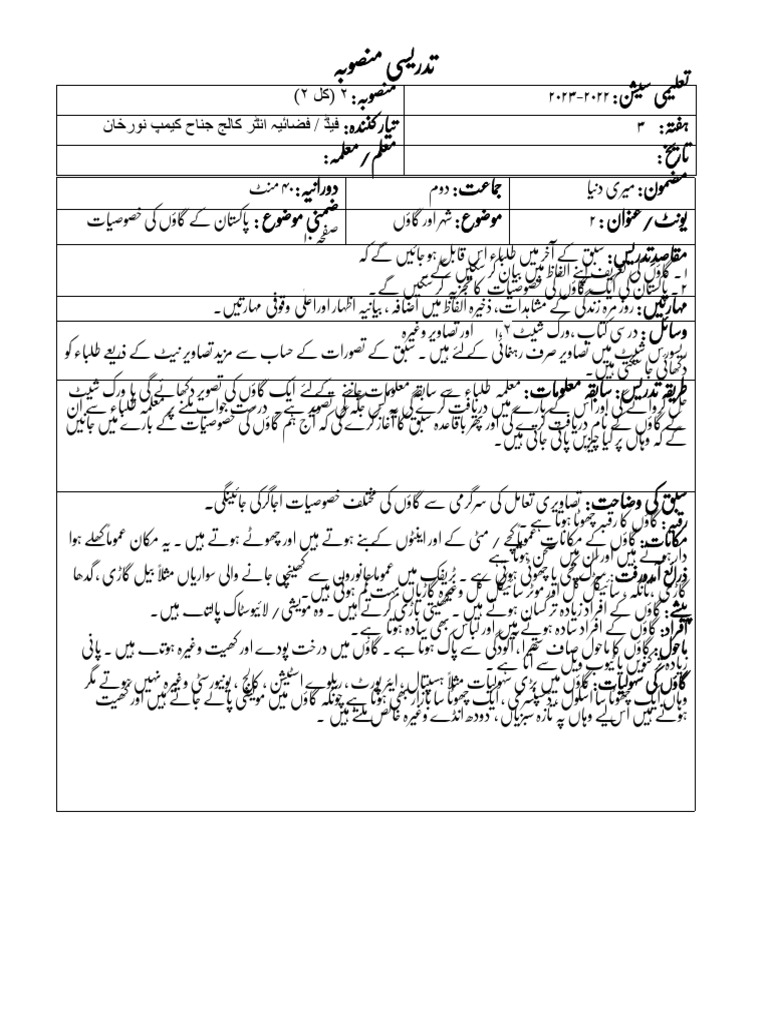 تدریسی منصوبہ
تعلیمی سیشن: ۲۰۲۲-۲۰۲۳
منصوبہ: ۲ (کل ۲)
ہفتہ: ۳
تیارکنندہ: فیڈ / فضائیہ انٹر کالج جناح کیمپ نورخان
تاریخ:
معلم/معلمہ:
مضمون: میری دنیا
جماعت: دوم
دورانیہ: ۴۰ منٹ
یونٹ/عنوان: ۲
موضوع: شہر اور گاؤں
ضمنی موضوع: پاکستان کے گاؤں کی خصوصیات
صفحہ ۱۰
مقاصد تدریس: سبق کے آخر میں طلباء اس قابل ہو جائیں گے کہ
۱۔ گاؤں کی تعریف اپنے الفاظ میں بیان کر سکیں گے۔
۲۔ پاکستان کی ایک گاؤں کی خصوصیات کا تجزیہ کر سکیں گے۔
مہارتیں: روز مرہ زندگی کے مشاہدات، ذخیرہ الفاظ میں اضافہ، بیانیہ اظہار اور اعلٰی وقوفی مہارتیں۔
وسائل: درسی کتاب، ورک شیٹ ۱،۲ اور تصاویر وغیرہ
ریسورس شیٹ میں تصاویر صرف رہنمائی کے لئے ہیں۔ سبق کے تصورات کے حساب سے مزید تصاویر نیٹ کے ذریعے طلباء کو
دکھائی جا سکتی ہیں۔
طریقہ تدریس: سابقہ معلومات: معلمہ طلباء سے سابقہ معلومات جاننے کے لئے ایک گاؤں کی تصویر دکھائے گی یا ورک شیٹ
حل کروائے گی اور اس کے بارے میں دریافت کرے گی یہ کس جگہ کی تصویر ہے۔ درست جواب ملنے پر معلمہ طلباء سے ان
کے گاؤں کے نام دریافت کرے گی اور پھر باقاعدہ سبق کا آغاز کرے گی کہ آج ہم گاؤں کی خصوصیات کے بارے میں جانیں
گے کہ وہاں پر کیا چیزیں پائی جاتی ہیں۔
سبق کی وضاحت: تصاویری تعامل کی سرگرمی سے گاؤں کی مختلف خصوصیات اجاگر کی جائینگی۔
رقبہ: گاؤں کا رقبہ چھوٹا ہوتا ہے۔
مکانات: گاؤں کے مکانات عموماً کچے / مٹی کے اور اینٹوں کے بنے ہوتے ہیں اور چھوٹے ہوتے ہیں۔ یہ مکان عموماً کھلے ہوا
دار ہوتے ہیں اور ان میں صحن ہوتا ہے
ذرائع آمدورفت: سڑک کچی یا چھوٹی ہوتی ہے۔ ٹریفک میں عموماً جانوروں سے کھینچی جانے والی سواریاں مثلاً بیل گاڑی، گدھا
گاڑی، تانگہ، سائیکل کل اور موٹر سائیکل کل وغیرہ گاڑیاں بہت کم ہوتی ہیں۔
پیشے: گاؤں کے افراد زیادہ تر کسان ہوتے ہیں۔ کھیتی باڑی کرتے ہیں۔ وہ مویشی/ لائیوسٹاک پالتے ہیں۔
افراد: گاؤں کے افراد سادہ ہوتے ہیں اور لباس بھی سادہ ہوتا ہے۔
ماحول: گاؤں کا ماحول صاف ستھرا، آلودگی سے پاک ہوتا ہے۔ گاؤں میں درخت پودے اور کھیت وغیرہ ہوتے ہیں۔ پانی
زیادہ تر کنویں یا ٹیوب ویل سے آتا ہے۔
گاؤں کی سہولیات: گاؤں میں بڑی سہولیات مثلاً ہسپتال، ایئرپورٹ، ریلوے اسٹیشن، کالج، یونیورسٹی وغیرہ نہیں ہوتے مگر
وہاں ایک چھوٹا سا اسکول، ڈسپنسری، ایک چھوٹا سا بازار بھی ہوتا ہے چونکہ گاؤں میں مویشی پالے جاتے ہیں اور کھیت
ہوتے ہیں اس لیے وہاں پہ تازہ سبزیاں، دودھ انڈے وغیرہ خالص ملتے ہیں۔